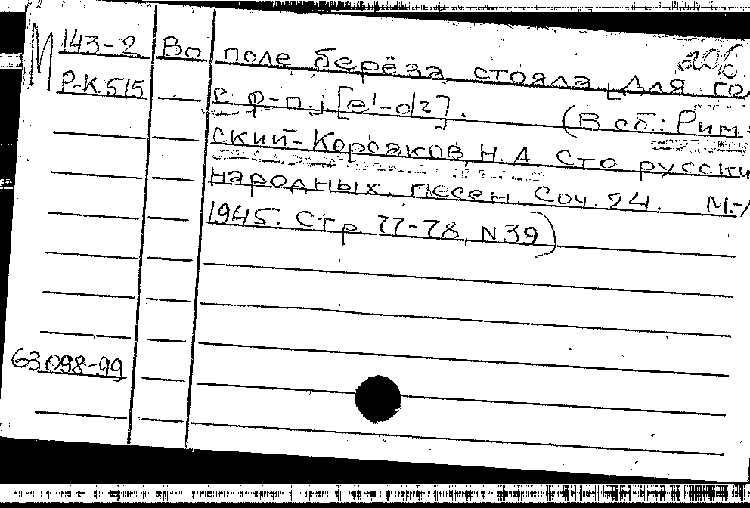 206
М 143-2 Во поле берёза стояла, Для го
Р-К 515 с ф-п. [e¹-d²]. (В сб.: Рим-
ский-Корсаков, Н. А. Сто русски
народных песен. Соч. 24. М.-
1945. Стр. 77-78, N 39)
63098-99